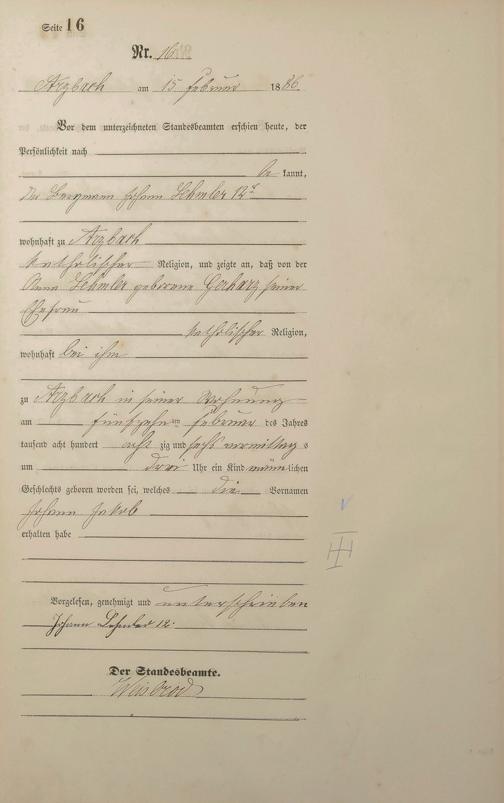 Seite 16
Nr. 16
Arzbach am 15 Februar 1886.
Vor dem unterzeichneten Standesbeamten erschien heute, der
Persönlichkeit nach
be kannt,
Der Bergmann Johann Lehmler 12r
wohnhaft zu Arzbach
katholischer Religion, und zeigte an, daß von der
Anna Lehmler geborene Gerharz seiner
Ehefrau
katholischer Religion,
wohnhaft bei ihm
zu Arzbach in seiner Wohnung
am fünfzehnten Februar des Jahres
tausend acht hundert acht zig und sechs vormittags
um drei Uhr ein Kind männlichen
Geschlechts geboren worden sei, welches die Vornamen
Johann Jakob
erhalten habe
Vorgelesen, genehmigt und unterschrieben
Johann Lehmler 12.
Der Standesbeamte.
Weisbrod